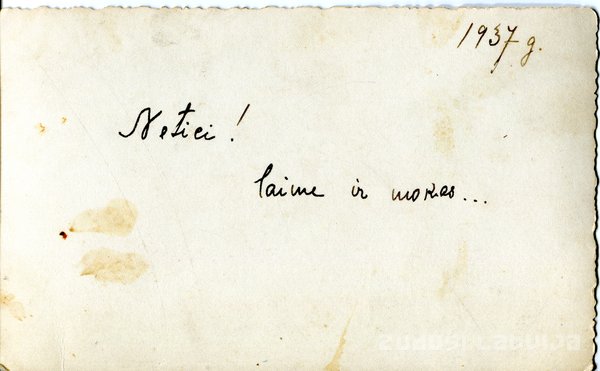 1937 g.
Netici!
laime ir mokas...
zudusilatvija